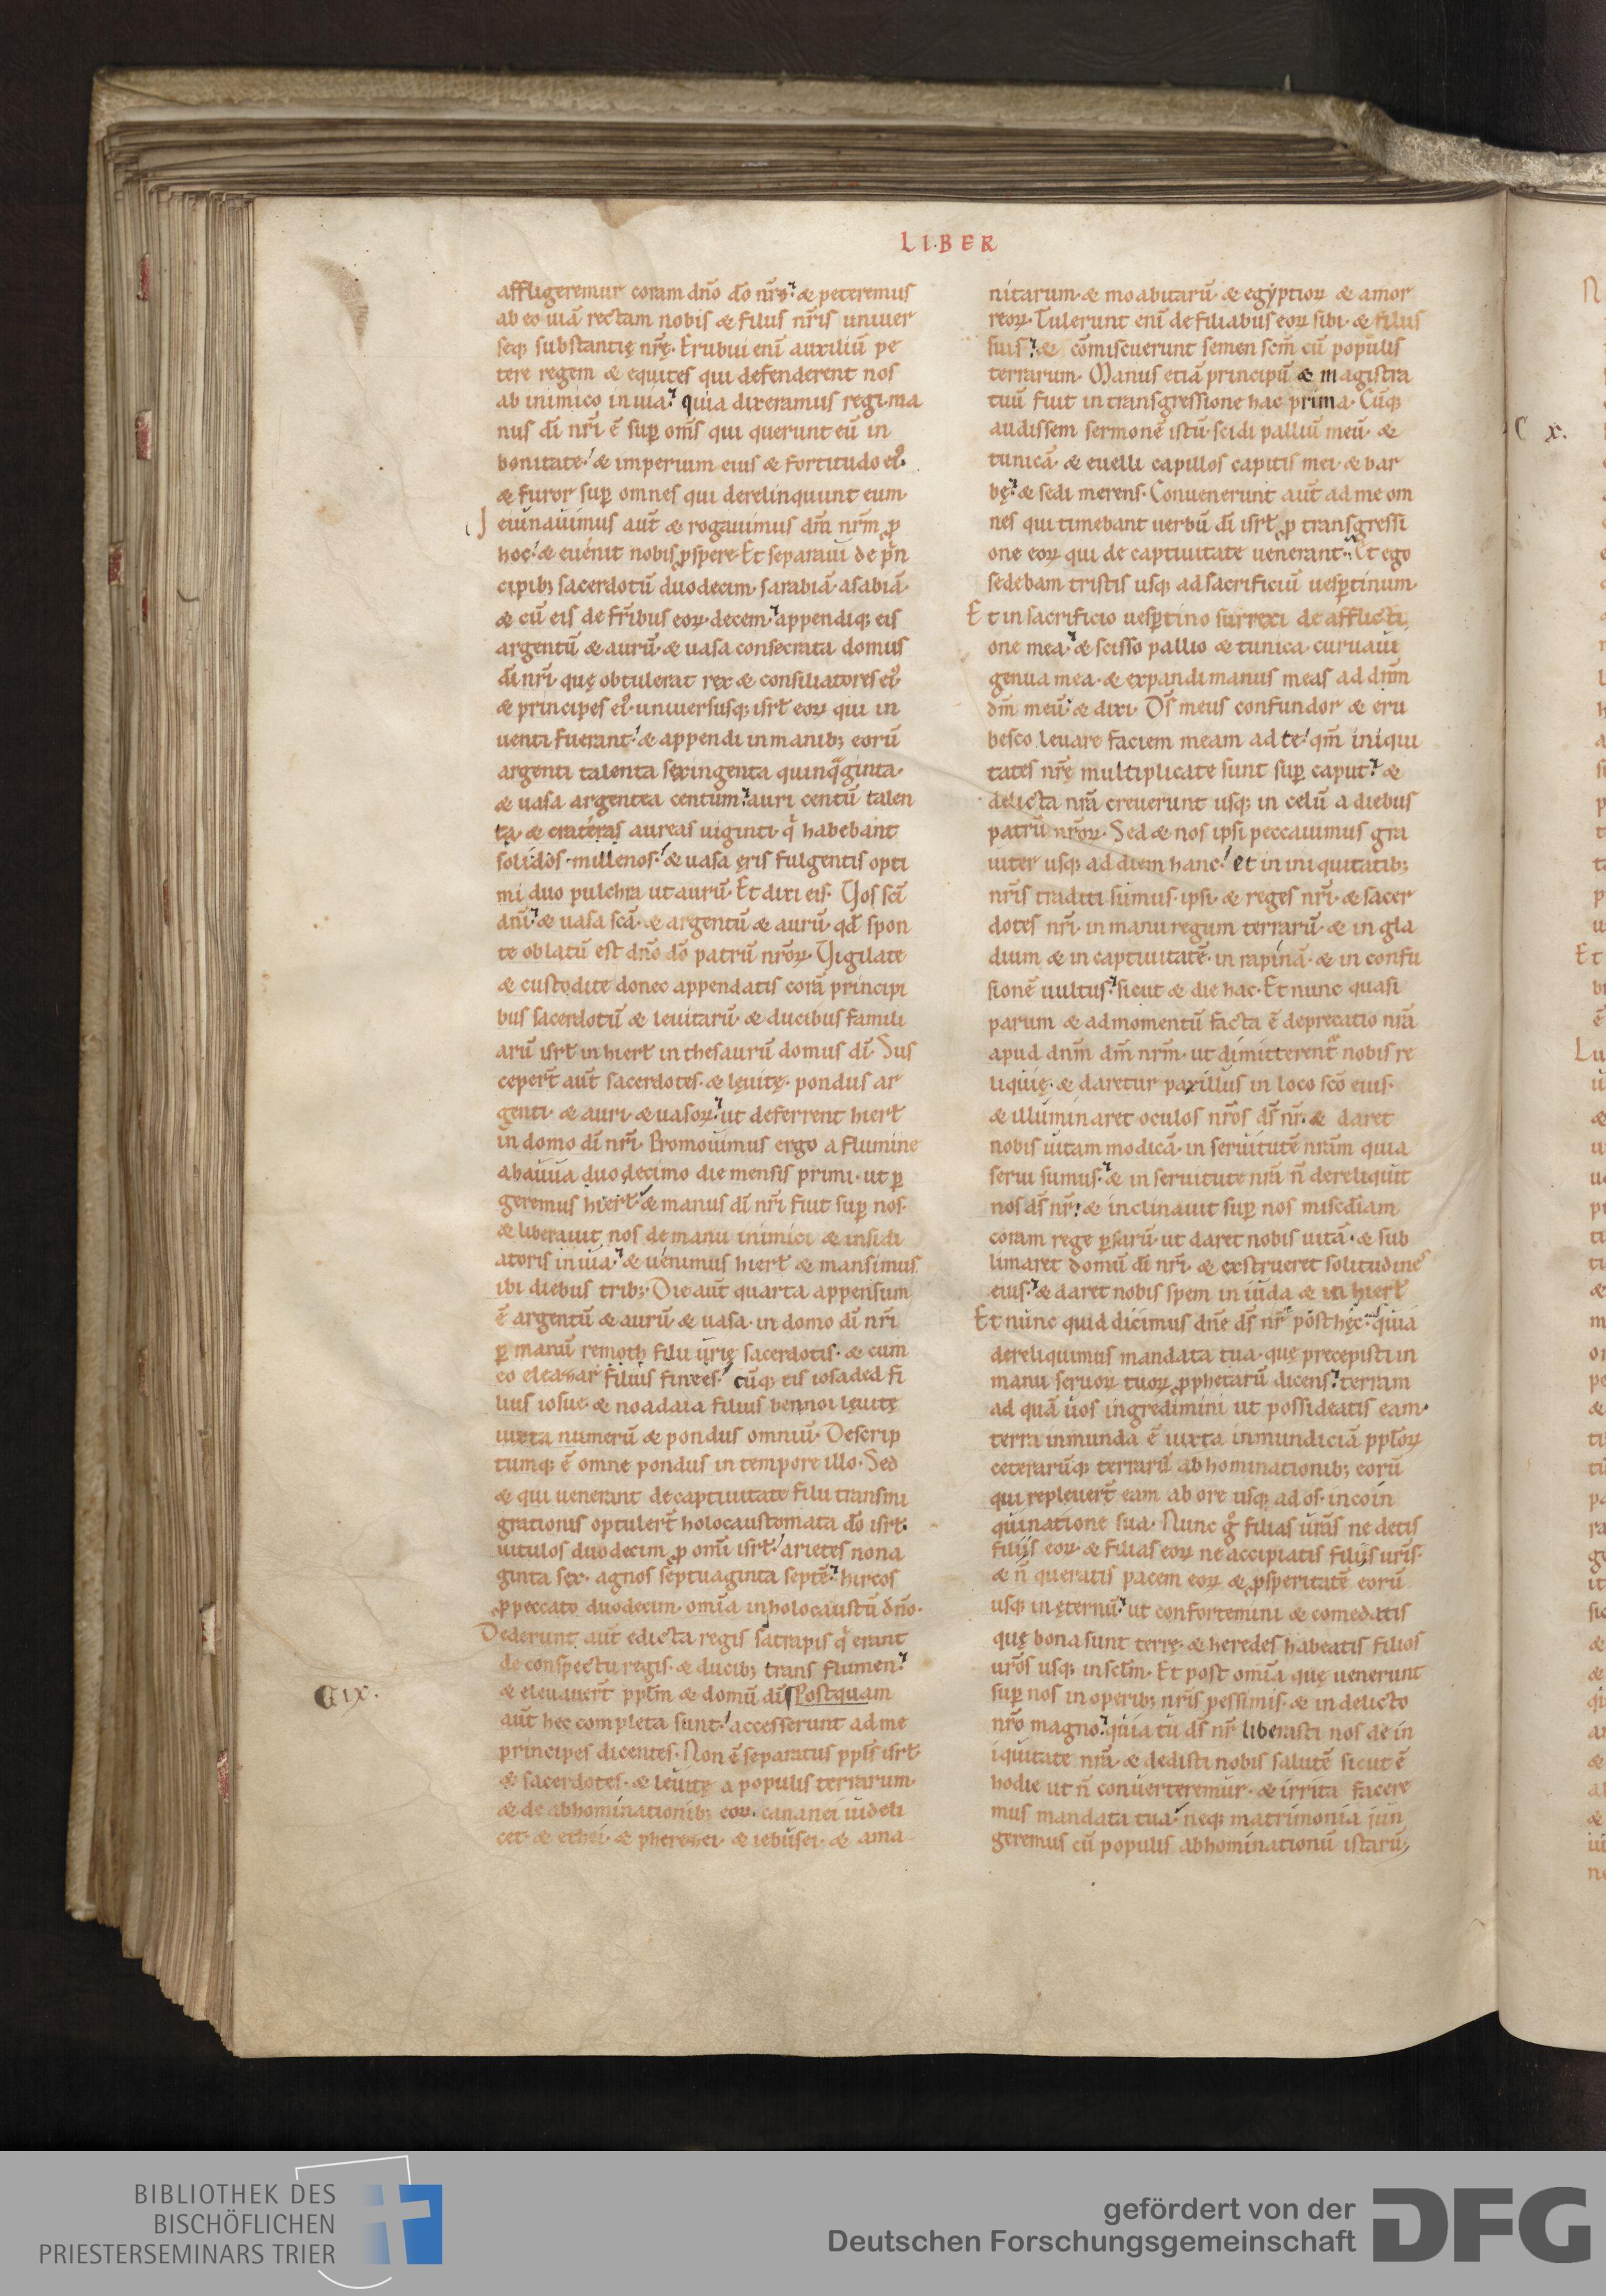 LIBER
affligeremur coram dn̄o dō nr̄o. & peteremus
ab eo uiā rectam nobis & filiis nr̄is uniuer
seq; substantię nr̄ę. Erubui enī auxiliū pe
tere regem & equites qui defenderent nos
ab inimico in uia. quia dixeramus regi. ma
nus dī nr̄i ē sup om̄s qui querunt eū in
bonitate. & imperium eius & fortitudo ei᷒.
& furor sup omnes qui derelinquunt eum.
Ieiunauimus aut̄ & rogauimus dm̄ nr̄m ꝓ
hoc. & euenit nobis ꝓspere. Et separaui de pn
cipib; sacerdotū duodecim. sarabiā. asabiā.
& cū eis de fr̄ibus eoꝝ. decem. appendiq; eis
argentū & aurū. & uasa consecrata domus
dī nr̄i. quę obtulerat rex & consiliatores ei᷒.
& principes ei᷒. uniuersusq; isrł eoꝝ qui in
uenti fuerant. & appendi in manib; eorū
argenti talenta sexingenta quinqginta.
& uasa argentea centum. auri centū talen
ta. & crateras aureas uiginti. q̄ habebant
solidos. millenos. & uasa ęris fulgentis opti
mi duo pulchra ut aurū. Et dixi eis. Vos sc̄i
dn̄i. & uasa sc̄a. & argentū & aurū. qd̄ spon
te oblatū est dn̄o dō patrū nr̄oꝝ. Vigilate
& custodite donec appendatis corā principi
bus sacerdotū & leuitarū. & ducibus famili
arū isrł in hierł in thesaurū domus dī. Sus
cepert̄ aut̄ sacerdotes. & leuitę. pondus ar
genti. & auri. & uasoꝝ. ut deferrent hierł
in domo dī nr̄i. Promouimus ergo a flumine
ahauua duodecimo die mensis primi. ut ꝑ
geremus hierł. & manus dī nr̄i fuit sup nos.
& liberauit nos de manu inimici & insidi
atoris in uia. & uenimus hierł & mansimus
ibi diebus trib;. Die aut̄ quarta appensum
ē argentū & aurū. & uasa. in domo dī nr̄i
ꝑ manū remoth filii urię sacerdotis. & cum
eo eleazar filius finees. cūq; eis iosaded fi
lius iosue. & noadaia filius bennoi leuitę
iuxta numerū & pondus omniū. Descrip
tumq; ē omne pondus in tempore illo. Sed
& qui uenerant de captiuitate filii transmi
grationis optulert̄ holocaustomata dō isrł.
uitulos duodecim ꝓ om̄i isrł. arietes nona
ginta sex. agnos septuaginta septē. hircos
ꝓ peccato duodecim. om̄ia in holocaustū dn̄o.
Dederunt aut̄ edicta regis satrapis q̄ erant
de conspectu regis. & ducib; trans flumen.
& eleuauert̄ ppłm & domū dī. Postquam
C IX.
aut̄ hec completa sunt. accesserunt ad me
principes dicentes. Non ē separatus ppłs isrł
& sacerdotes. & leuitę a populis terrarum.
& de abhominationib; eoꝝ. cananei uideli
cet. & ethei. & pherezei. & iebusei. & ama
nitarum. & moabitarū. & egyptioꝝ & amor
reoꝝ. Tulerunt enī de filiabus eoꝝ sibi. & filiis
suis. & cōmiscuerunt semen sc̄m cū populis
terrarum. Manus etiā principū & magistra
tuū fuit in transgressione hac prima. Cūq;
audissem sermonē istū. scidi palliū meū. &
tunicā. & euelli capillos capitis mei. & bar
bę. & sedi merens. Conuenerunt aut̄ ad me om
nes qui timebant uerbū dī isrł ꝓ transgressi
one eoꝝ qui de captiuitate uenerant. Et ego
sedebam tristis usq; ad sacrificiū uesꝑtinum.
Et in sacrificio uesꝑtino surrexi de afflicti
one mea. & scisso pallio & tunica. curuaui
genua mea. & expandi manus meas ad dn̄m
dm̄ meū. & dixi. Ds̄ meus confundor & eru
besco leuare faciem meam ad te. qm̄ iniqui
tates nr̄ę multiplicate sunt sup caput. &
delicta nr̄a creuerunt usq; in celū a diebus
patrū nr̄oꝝ. Sed & nos ipsi peccauimus gra
uiter usq; ad diem hanc. et in iniquitatib;
nr̄is traditi sumus. ipsi. & reges nr̄i. & sacer
dotes nr̄i. in manu regum terrarū. & in gla
dium & in captiuitatē. in rapinā. & in confu
sionē uultus. sicut & die hac. Et nunc quasi
parum & ad momentū facta ē deprecatio nr̄a
apud dn̄m dm̄ nr̄m. ut dimitterent̄ nobis re
liquię. & daretur paxillus in loco sc̄o eius.
& illuminaret oculos nr̄os ds̄ nr̄. & daret
nobis uitam modicā. in seruitutē nr̄am quia
serui sumus. & in seruitute nr̄a n̄ dereliquit
nos ds̄ nr̄. & inclinauit sup nos misc̄diam
coram rege ꝑsarū. ut daret nobis uitā. & sub
limaret domū dī nr̄i. & exstrueret solitudines
eius. & daret nobis spem in iuda & in hierł.
Et nunc quid dicimus dn̄e ds̄ nr̄ post hęc. quia
dereliquimus mandata tua. quę precepisti in
manu seruoꝝ tuoꝝ ꝓphetarū dicens. terram
ad quā uos ingredimini ut possideatis eam.
terra inmunda ē iuxta inmundiciā ppłoꝝ
ceterarūq; terrarū abhominationib; eorū
qui repleuert̄ eam ab ore usq; ad os. in coin
quinatione sua. Nunc g̊ filias ur̄as ne detis
filiis eoꝝ. & filias eoꝝ ne accipiatis filiis ur̄is.
& n̄ queratis pacem eoꝝ & ꝓsperitatē eorū
usq; in ęternū. ut confortemini & comedatis
quę bona sunt terrę. & heredes habeatis filios
ur̄os usq; in scłm. Et post om̄ia quę uenerunt
sup nos in operib; nr̄is pessimis. & in delicto
nr̄o magno. quia tu ds̄ nr̄ liberasti nos de in
iquitate nr̄a. & dedisti nobis salutē sicut ē
hodie ut n̄ conuerteremur. & irrita facere
mus mandata tua. neq; matrimonia iun
geremus cū populis abhominationū istarū,
C x.
BIBLIOTHEK DES
BISCHÖFLICHEN
PRIESTERSEMINARS TRIER
gefördert von der
Deutschen Forschungsgemeinschaft
DFG